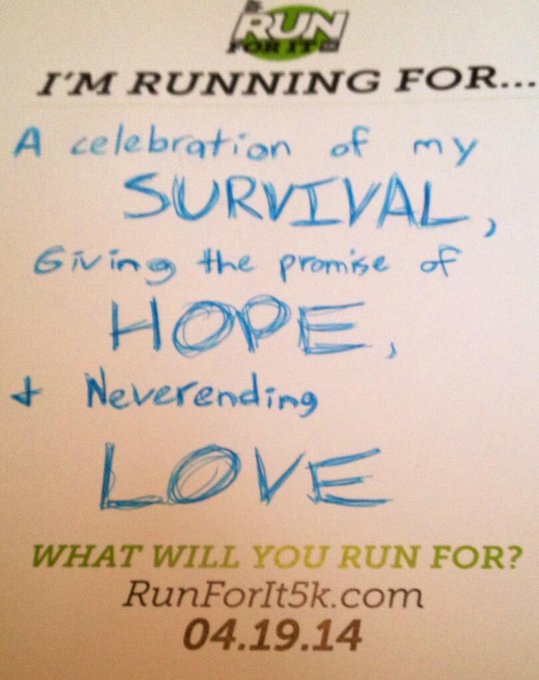 RUN
FOR IT
I'M RUNNING FOR...
A celebration of my
SURVIVAL,
Giving the promise of
HOPE,
+ Neverending
LOVE
WHAT WILL YOU RUN FOR?
RunForIt5k.com
04.19.14